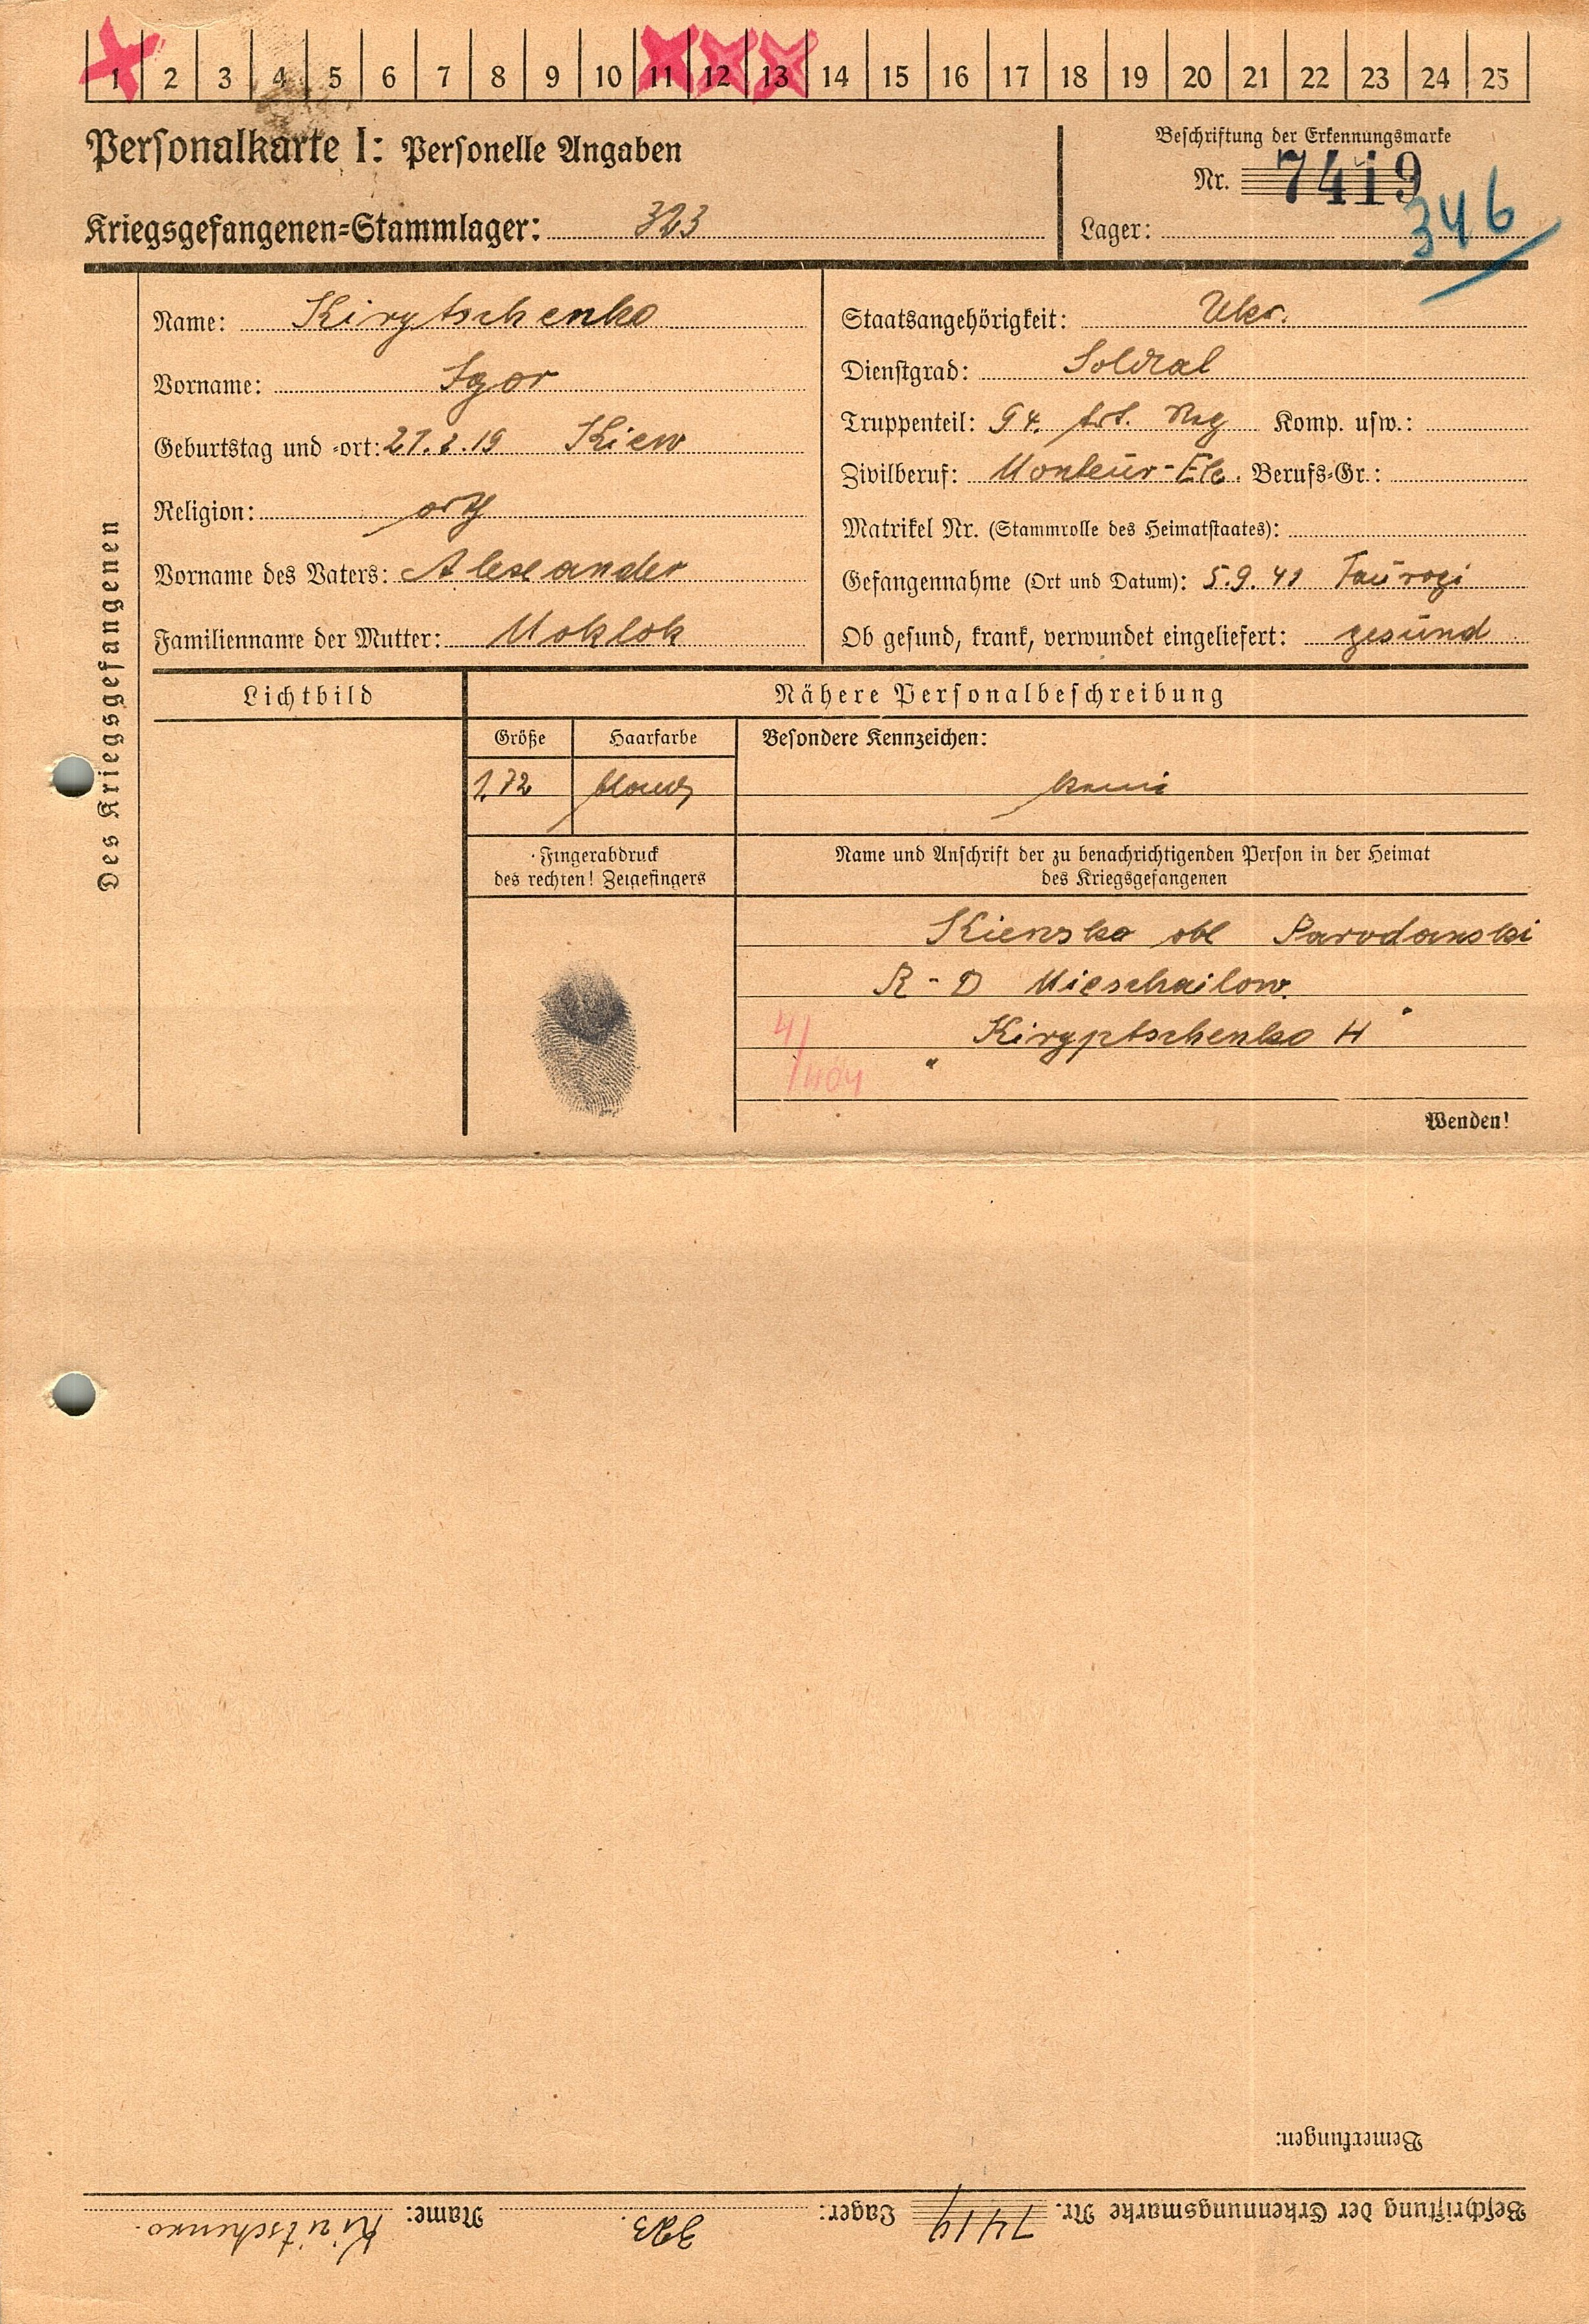 1 2 3 4 5 6 7 8 9 10 11 12 13 14 15 16 17 18 19 20 21 22 23 24 25
Personalkarte I: Personelle Angaben
Beschriftung der Erkennungsmarke
Nr. 7419
Kriegsgefangenen=Stammlager: 323
Lager: 346
Des Kriegsgefangenen
Name: Kirytschenko
Vorname: Igor
Geburtstag und =ort: 19 Kiew
Religion: orth
Vorname des Vaters: Alexander
Familienname der Mutter: Moklok
Staatsangehörigkeit: Ukr.
Dienstgrad: Soldat
Truppenteil: 94. Art. Reg Komp. usw.:
Zivilberuf: Monteur-Ele. Berufs=Gr.:
Matrikel Nr. (Stammrolle des Heimatstaates):
Gefangennahme (Ort und Datum): 5.9.41 Taurogi
Ob gesund, krank, verwundet eingeliefert: gesund
Lichtbild
Nähere Personalbeschreibung
Größe
Haarfarbe
Besondere Kennzeichen:
1,72
blond
keine
Fingerabdruck
des rechten! Zeigefingers
Name und Anschrift der zu benachrichtigenden Person in der Heimat
des Kriegsgefangenen
Kiewska obl
R-D Mieschailow.
Kiryptschenko H
4/404
Wenden!
Bemerkungen:
Beschriftung der Erkennungsmarke Nr. 7419 Lager: 323 Name: Kiritschenko.